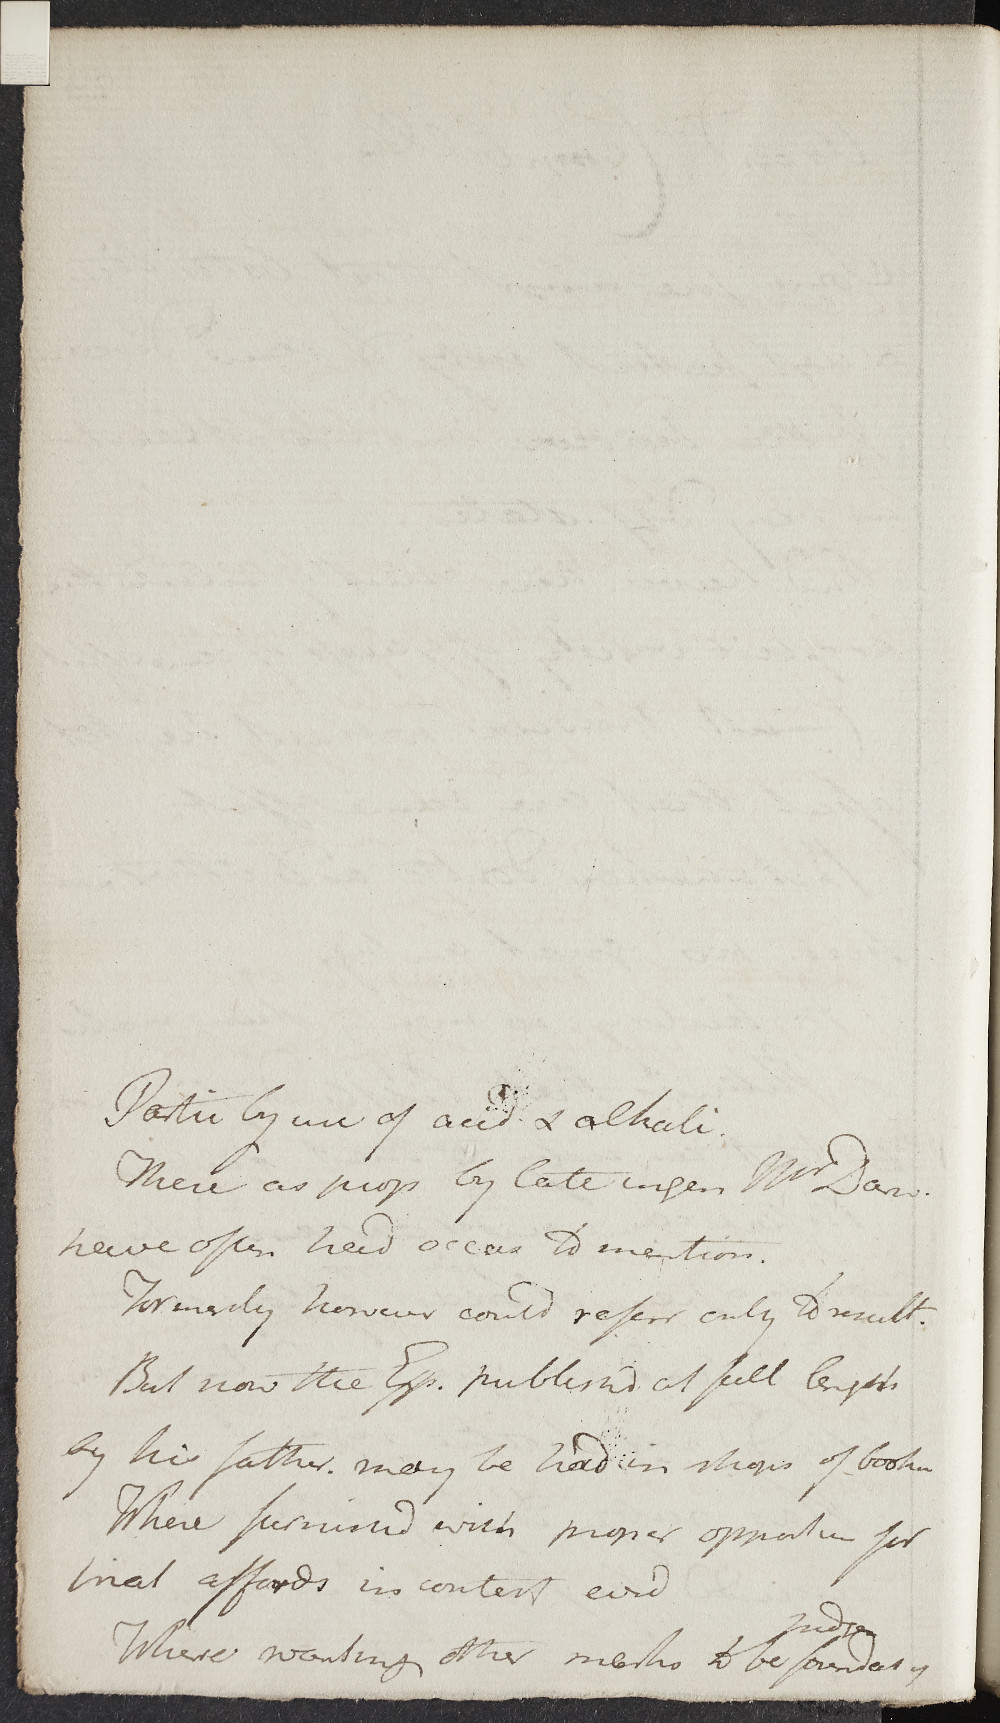 Partic by use of acid & alkali.
These as props by late ingen Mr Darw.
have often had occas to mention.
Formerly however could refer only to result.
But now the Exp. publishd at full length
by his father. may be had in shops of books
Where furnishd with proper opportun for
trial affords incontest evid
Where wanting other marks to be found